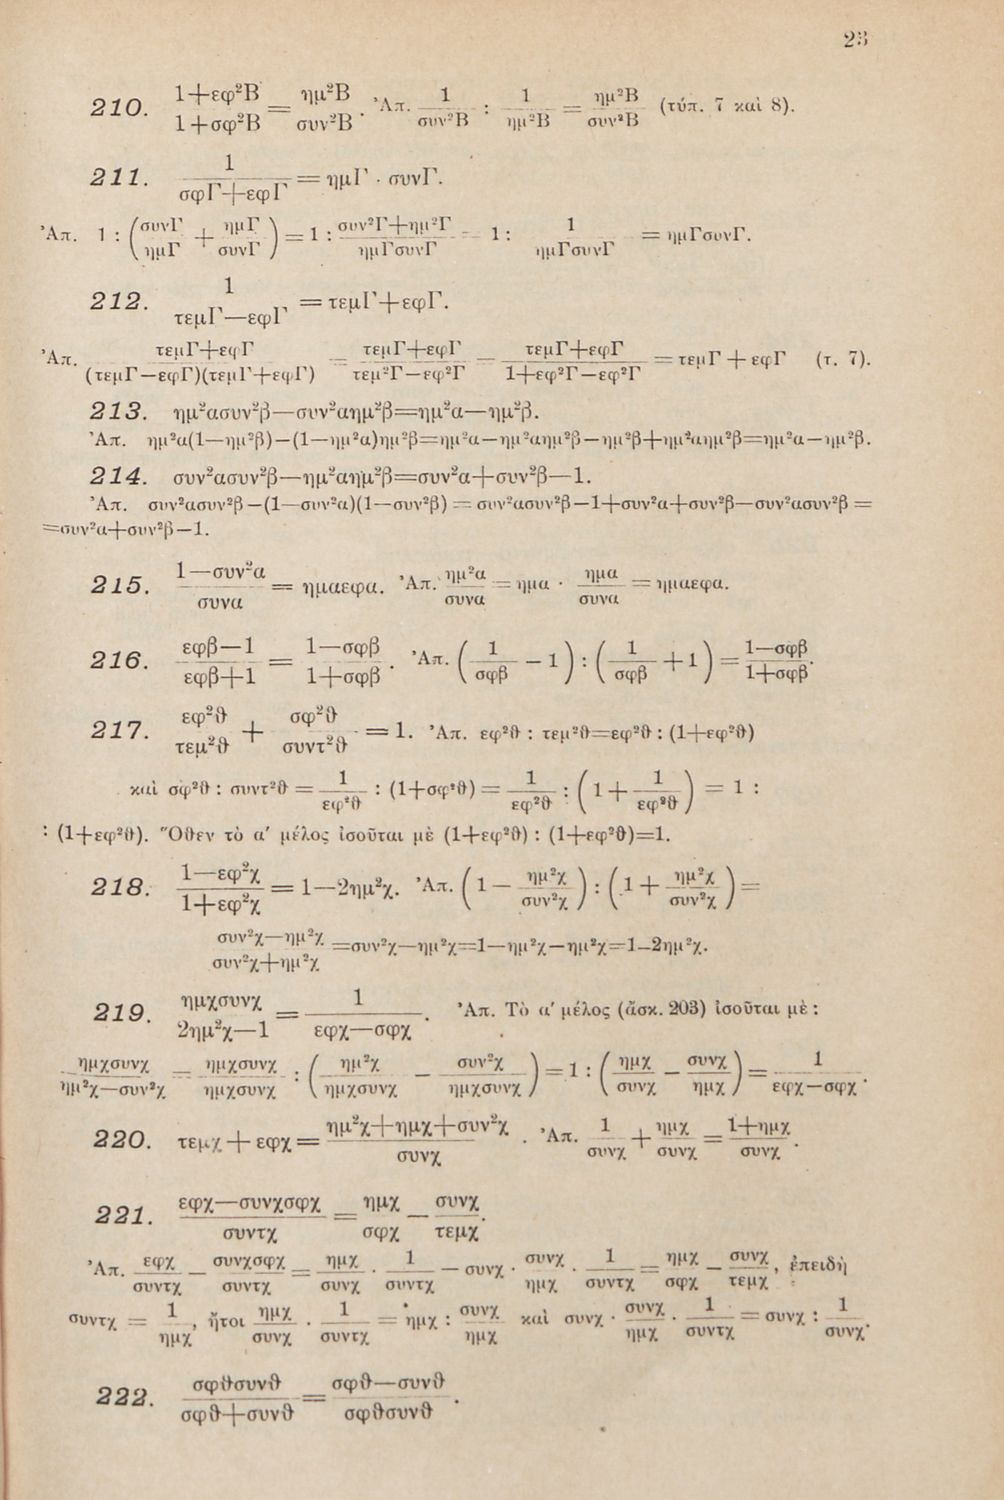 23
210. (1+εφ²Β)/(1+σφ²Β) = ημ²Β/συν²Β. Ἀπ. 1/συν²Β : 1/ημ²Β = ημ²Β/συν²Β (τύπ. 7 καὶ 8).
211. 1/(σφΓ+εφΓ) = ημΓ · συνΓ.
Ἀπ. 1 : (συνΓ/ημΓ + ημΓ/συνΓ) = 1 : (συν²Γ+ημ²Γ)/(ημΓσυνΓ) = 1 : 1/(ημΓσυνΓ) = ημΓσυνΓ.
212. 1/(τεμΓ—εφΓ) = τεμΓ+εφΓ.
Ἀπ. (τεμΓ+εφΓ)/((τεμΓ—εφΓ)(τεμΓ+εφΓ)) = (τεμΓ+εφΓ)/(τεμ²Γ—εφ²Γ) = (τεμΓ+εφΓ)/(1+εφ²Γ—εφ²Γ) = τεμΓ + εφΓ (τ. 7).
213. ημ²ασυν²β—συν²αημ²β=ημ²α—ημ²β.
Ἀπ. ημ²α(1—ημ²β)—(1—ημ²α)ημ²β=ημ²α—ημ²αημ²β—ημ²β+ημ²αημ²β=ημ²α—ημ²β.
214. συν²ασυν²β—ημ²αημ²β=συν²α+συν²β—1.
Ἀπ. συν²ασυν²β—(1—συν²α)(1—συν²β) = συν²ασυν²β—1+συν²α+συν²β—συν²ασυν²β =
=συν²α+συν²β—1.
215. (1—συν²α)/συνα = ημαεφα. Ἀπ. ημ²α/συνα = ημα · ημα/συνα = ημαεφα.
216. (εφβ—1)/(εφβ+1) = (1—σφβ)/(1+σφβ). Ἀπ. (1/σφβ – 1) : (1/σφβ + 1) = (1—σφβ)/(1+σφβ).
217. εφ²ϑ/τεμ²ϑ + σφ²ϑ/συντ²ϑ = 1. Ἀπ. εφ²ϑ : τεμ²ϑ=εφ²ϑ : (1+εφ²ϑ)
καὶ σφ²ϑ : συντ²ϑ = 1/εφ²ϑ : (1+σφ²ϑ) = 1/εφ²ϑ : (1 + 1/εφ²ϑ) = 1 :
: (1+εφ²ϑ). Ὅϑεν τὸ α' μέλος ἰσοῦται μὲ (1+εφ²ϑ) : (1+εφ²ϑ)=1.
218. (1—εφ²χ)/(1+εφ²χ) = 1—2ημ²χ. Ἀπ. (1 — ημ²χ/συν²χ) : (1 + ημ²χ/συν²χ) =
(συν²χ—ημ²χ)/(συν²χ+ημ²χ) =συν²χ—ημ²χ=1—ημ²χ—ημ²χ=1–2ημ²χ.
219. ημχσυνχ/(2ημ²χ—1) = 1/(εφχ—σφχ). Ἀπ. Τὸ α' μέλος (ἄσκ. 203) ἰσοῦται μὲ :
ημχσυνχ/(ημ²χ—συν²χ) = ημχσυνχ/ημχσυνχ : (ημ²χ/ημχσυνχ — συν²χ/ημχσυνχ) = 1 : (ημχ/συνχ — συνχ/ημχ) = 1/(εφχ—σφχ).
220. τεμχ + εφχ = (ημ²χ+ημχ+συν²χ)/συνχ. Ἀπ. 1/συνχ + ημχ/συνχ = (1+ημχ)/συνχ.
221. (εφχ—συνχσφχ)/συντχ = ημχ/σφχ — συνχ/τεμχ.
Ἀπ. εφχ/συντχ — συνχσφχ/συντχ = ημχ/συνχ · 1/συντχ — συνχ · συνχ/ημχ · 1/συντχ = ημχ/σφχ — συνχ/τεμχ, ἐπειδὴ
συντχ = 1/ημχ, ἤτοι ημχ/συνχ · 1/συντχ = ημχ : συνχ/ημχ καὶ συνχ · συνχ/ημχ · 1/συντχ = συνχ : 1/συνχ.
222. σφϑσυνϑ/(σφϑ+συνϑ) = (σφϑ—συνϑ)/σφϑσυνϑ.